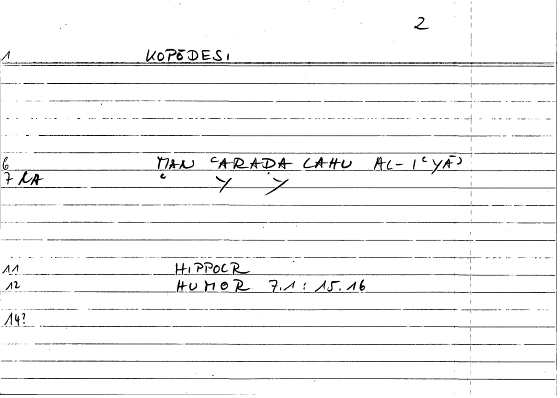 2
1 KOPŌDESI
6 MAN ʿARAḌA LAHU AL-IʿYĀʾ
7 NA
11 HIPPOCR
12 HUMOR 7.1 : 15.16
14?